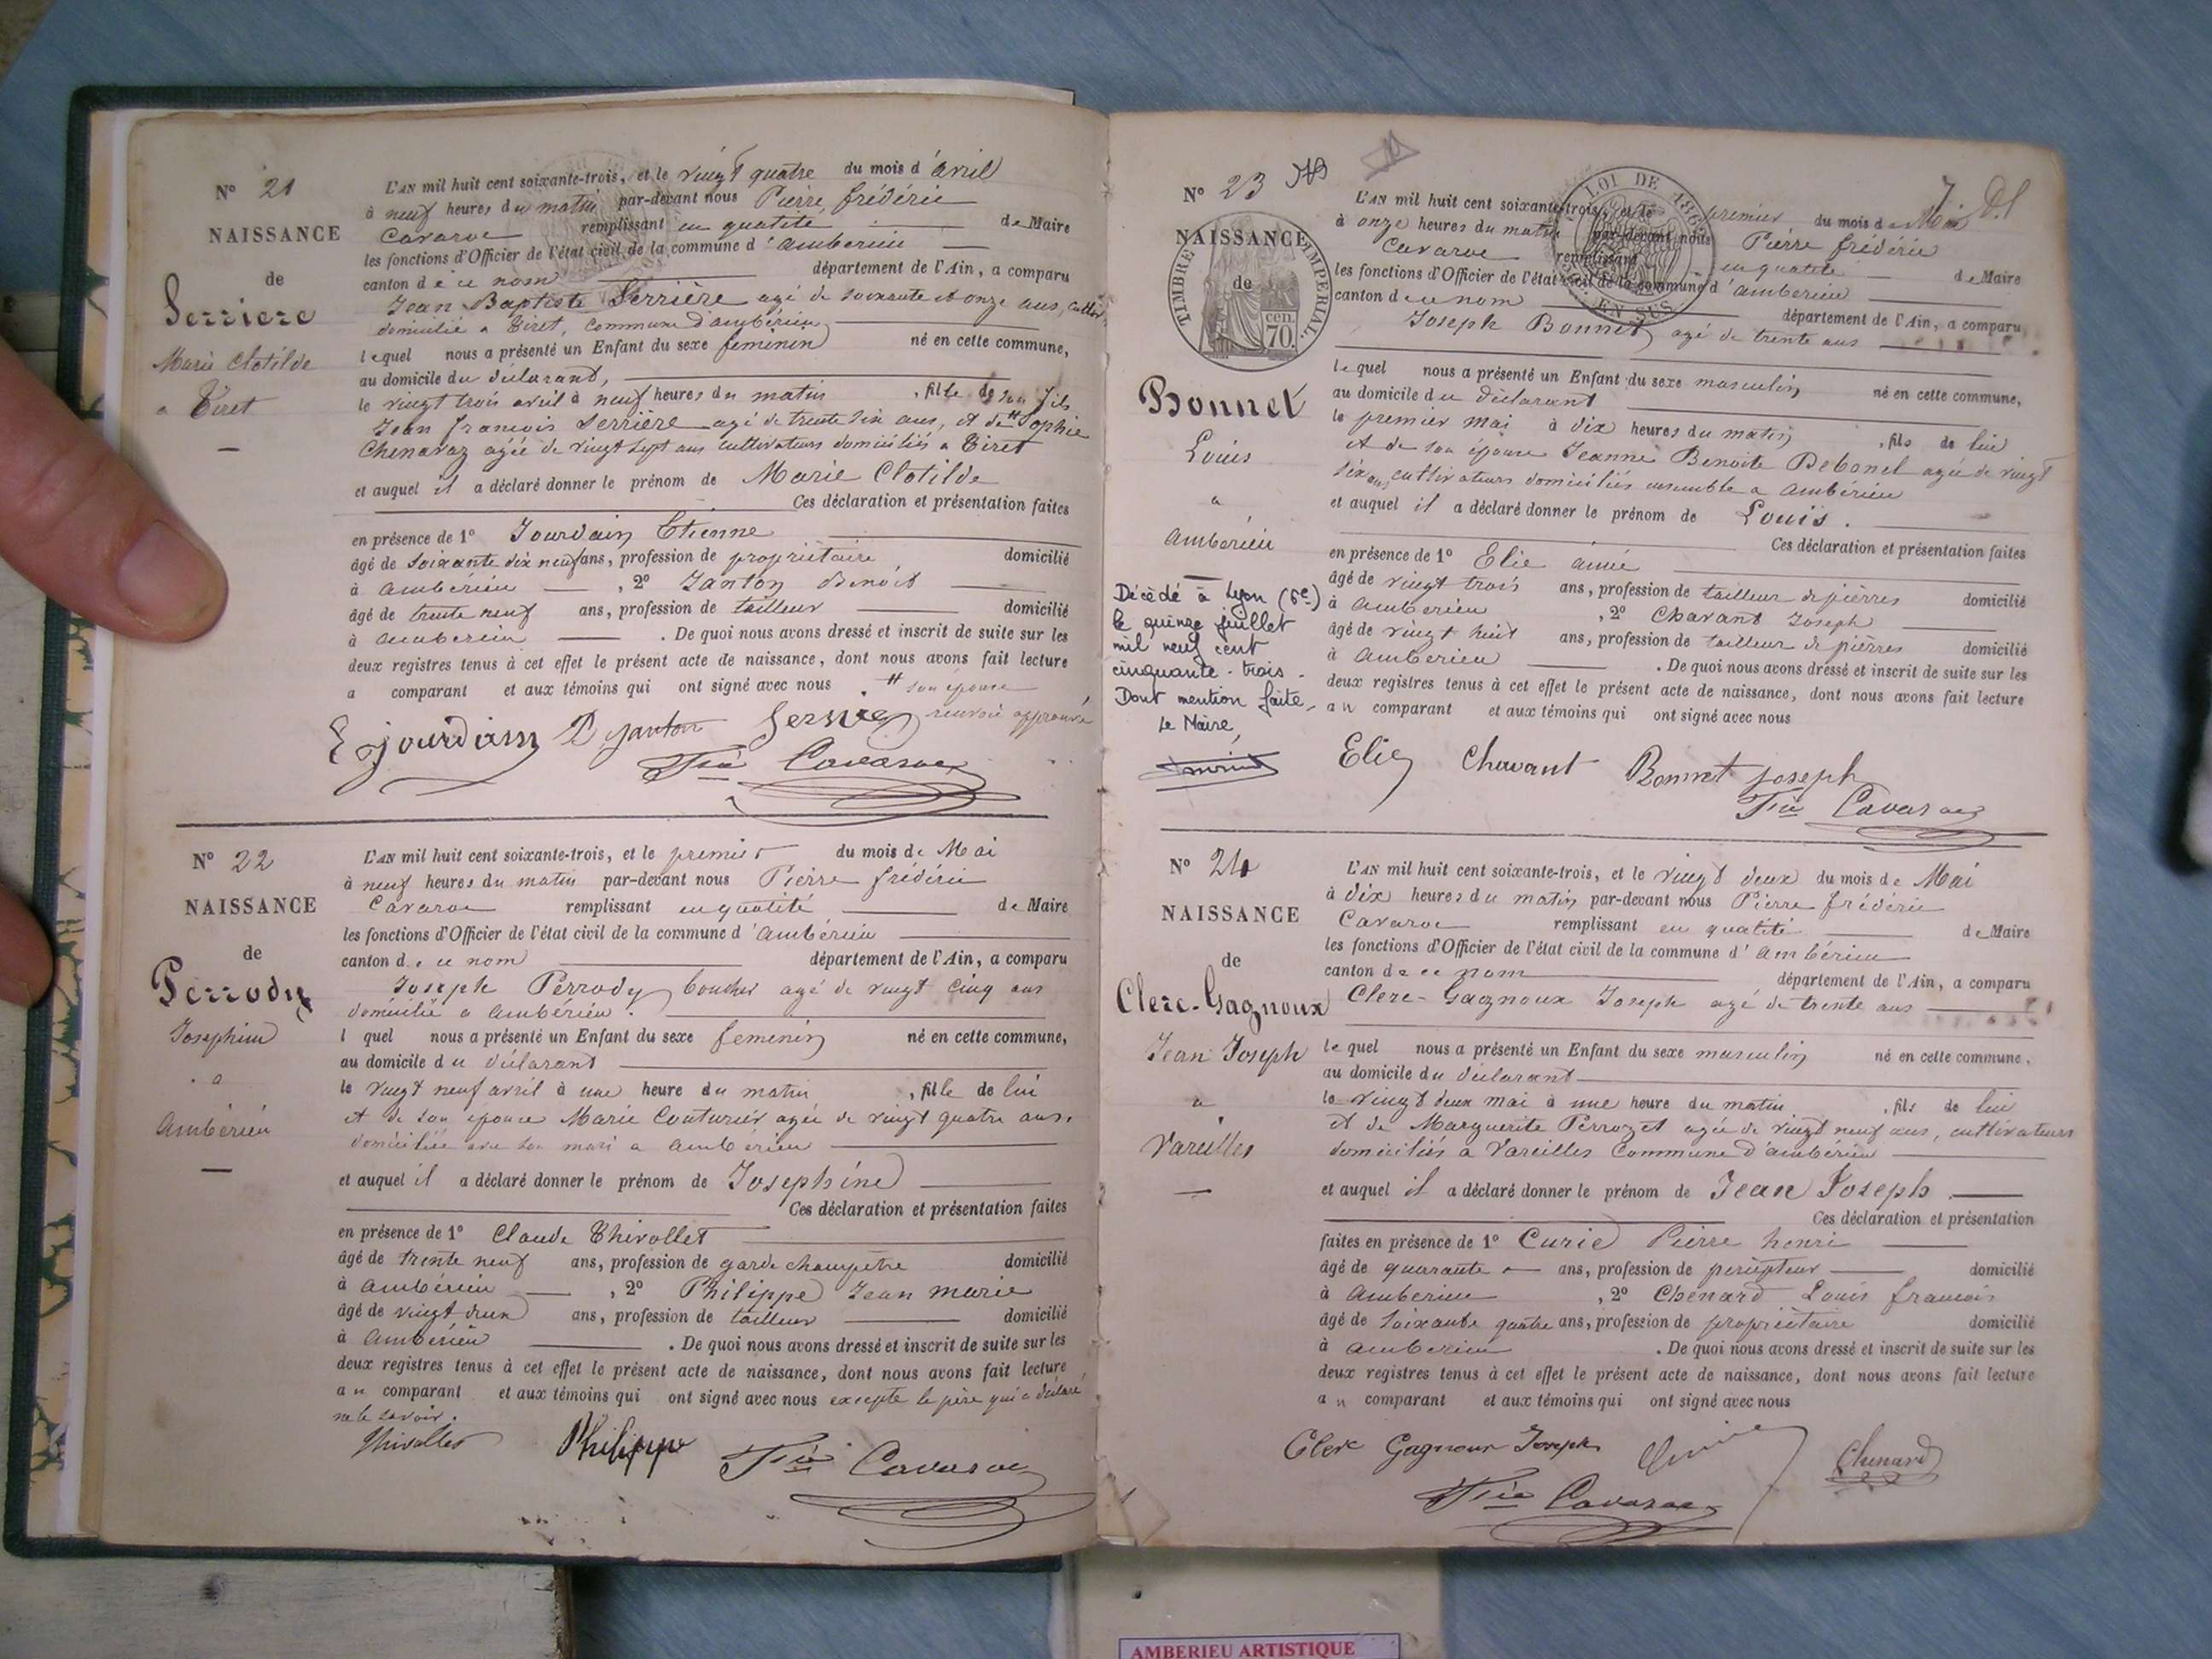 N° 21
NAISSANCE
de
Serriere
Marie Clotilde
a Tiret
L'AN mil huit cent soixante-trois, et le vingt quatre du mois d'avril
à neuf heures du matin par-devant nous Pierre frédéric
Cavaroc remplissant en qualité de Maire
les fonctions d'Officier de l'état civil de la commune d'ambérieu
canton de ce nom département de l'Ain, a comparu
Jean Baptiste Serrière agé de soixante et onze ans,
domicilié a Tiret, Commune d'ambérieu
lequel nous a présenté un Enfant du sexe femenin né en cette commune,
au domicile du déclarant,
le vingt trois avril à neuf heures du matin , fille de son fils
Jean francois Serrière agé de trente six ans, et de # Sophie
Chenavaz agée de vingt sept ans cultivateurs domiciliés a Tiret
et auquel il a déclaré donner le prénom de Marie Clotilde
Ces déclaration et présentation faites
en présence de 1° Jourdain Etienne
âgé de soixante dix neuf ans, profession de propriétaire domicilié
à ambérieu , 2° Janton Benoit
âgé de trente neuf ans, profession de tailleur domicilié
à amberieu . De quoi nous avons dressé et inscrit de suite sur les
deux registres tenus à cet effet le présent acte de naissance, dont nous avons fait lecture
a comparant et aux témoins qui ont signé avec nous . # son épouse
renvoi approuvé
E Jourdain B Janton
Fic Cavaroc
N° 22
NAISSANCE
de
Perrody
Josephine
a
Ambérieu
L'AN mil huit cent soixante-trois, et le premier du mois de Mai
à neuf heures du matin par-devant nous Pierre frédéric
Cavaroc remplissant en qualité de Maire
les fonctions d'Officier de l'état civil de la commune d'ambérieu
canton de ce nom département de l'Ain, a comparu
Joseph Perrody boucher agé de vingt cinq ans
domicilié a ambérieu.
l quel nous a présenté un Enfant du sexe femenin né en cette commune,
au domicile du déclarant
le vingt neuf avril à une heure du matin , fille de lui
et de son épouse Marie Couturier agée de vingt quatre ans.
domiciliée avec son mari a ambérieu
et auquel il a déclaré donner le prénom de Josephine
Ces déclaration et présentation faites
en présence de 1° Claude Thivollet
âgé de trente neuf ans, profession de garde champetre domicilié
à ambérieu , 2° Philippe Jean marie
âgé de vingt deux ans, profession de tailleur domicilié
à ambérieu . De quoi nous avons dressé et inscrit de suite sur les
deux registres tenus à cet effet le présent acte de naissance, dont nous avons fait lecture
au comparant et aux témoins qui ont signé avec nous excepte le père qui a déclaré
ne le savoir.
Thivollet Philippe Fic Cavaroc
N° 23
NAISSANCE
de
TIMBRE IMPERIAL
70 cen.
LOI DE
EN SUS
Bonnet
Louis
a
ambérieu
Décédé à Lyon (6e)
le quinze juillet
mil neuf cent
cinquante-trois.
Dont mention faite,
Le Maire,
L'AN mil huit cent soixante-trois, et le premier du mois de Mai
à onze heures du matin par-devant nous Pierre frédéric
Cavaroc remplissant en qualité de Maire
les fonctions d'Officier de l'état civil de la commune d'ambérieu
canton de ce nom département de l'Ain, a comparu
Joseph Bonnet agé de trente ans
lequel nous a présenté un Enfant du sexe masculin né en cette commune,
au domicile du déclarant
le premier mai à dix heures du matin , fils de lui
et de son épouse Jeanne Benoite Debonel agée de vingt
six ans, cultivateurs domiciliés ensemble a ambérieu
et auquel il a déclaré donner le prénom de Louis.
Ces déclaration et présentation faites
en présence de 1° Elie aimé
âgé de vingt trois ans, profession de tailleur de pierres domicilié
à ambérieu , 2° Chavant Joseph
âgé de vingt huit ans, profession de tailleur de pierres domicilié
à ambérieu . De quoi nous avons dressé et inscrit de suite sur les
deux registres tenus à cet effet le présent acte de naissance, dont nous avons fait lecture
au comparant et aux témoins qui ont signé avec nous
Elie Chavant Bonnet Joseph
Fic Cavaroc
N° 24
NAISSANCE
de
Clerc-Gagnoux
Jean Joseph
a
Vareilles
L'AN mil huit cent soixante-trois, et le vingt deux du mois de Mai
à dix heures du matin par-devant nous Pierre frédéric
Cavaroc remplissant en qualité de Maire
les fonctions d'Officier de l'état civil de la commune d'ambérieu
canton de ce nom département de l'Ain, a comparu
Clerc-Gagnoux Joseph agé de trente ans
lequel nous a présenté un Enfant du sexe masculin né en cette commune,
au domicile du déclarant
le vingt deux mai à une heure du matin , fils de lui
et de Marguerite Perrozet agée de vingt neuf ans, cultivateurs
domiciliés a Vareilles Commune d'ambérieu
et auquel il a déclaré donner le prénom de Jean Joseph.
Ces déclaration et présentation
faites en présence de 1° Curie Pierre henri
âgé de quarante ans, profession de percepteur domicilié
à amberieu , 2° Chenard Louis francois
âgé de soixante quatre ans, profession de propriétaire domicilié
à amberieu . De quoi nous avons dressé et inscrit de suite sur les
deux registres tenus à cet effet le présent acte de naissance, dont nous avons fait lecture
au comparant et aux témoins qui ont signé avec nous
Clerc Gagnoux Joseph Curie Chenard
Fic Cavaroc
AMBERIEU ARTISTIQUE